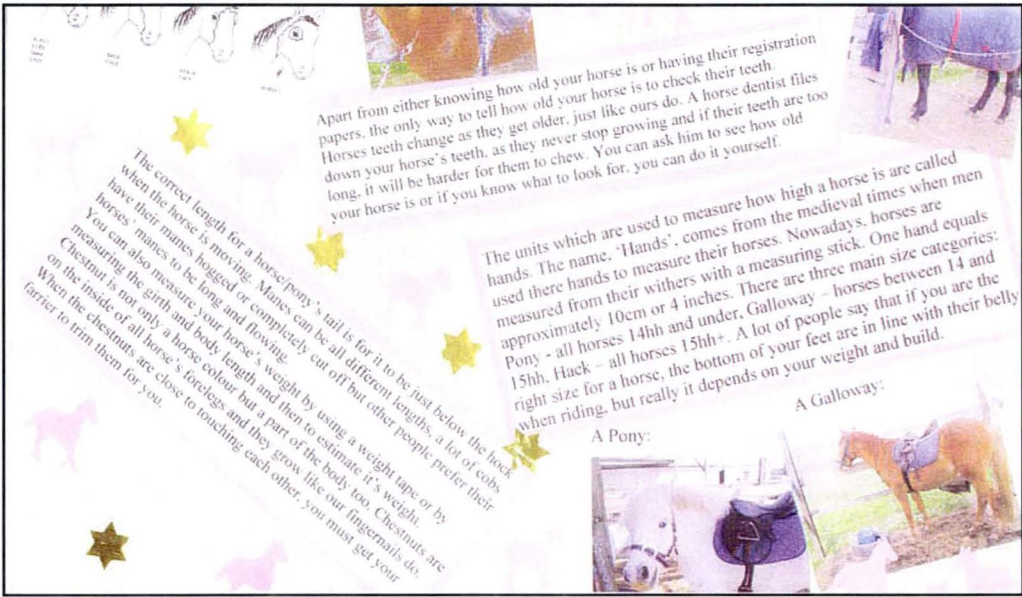 Apart from either knowing how old your horse is or having their registration
papers, the only way to tell how old your horse is to check their teeth.
Horses teeth change as they get older, just like ours do. A horse dentist files
down your horse's teeth, as they never stop growing and if their teeth are too
long, it will be harder for them to chew. You can ask him to see how old
your horse is or if you know what to look for, you can do it yourself.
The correct length for a horse/pony's tail is for it to be just below the hock
when the horse is moving. Manes can be all different lengths, a lot of cobs
have their manes hogged or completely cut off but other people prefer their
horses' manes to be long and flowing.
You can also measure your horse's weight by using a weight tape or by
measuring the girth and body length and then to estimate it's weight.
Chestnut is not only a horse colour but a part of the body too. Chestnuts are
on the inside of all horse's forelegs and they grow like our fingernails do.
When the chestnuts are close to touching each other, you must get your
farrier to trim them for you.
The units which are used to measure how high a horse is are called
hands. The name, 'Hands', comes from the medieval times when men
used there hands to measure their horses. Nowadays, horses are
measured from their withers with a measuring stick. One hand equals
approximately 10cm or 4 inches. There are three main size categories:
Pony - all horses 14hh and under, Galloway – horses between 14 and
15hh, Hack – all horses 15hh+. A lot of people say that if you are the
right size for a horse, the bottom of your feet are in line with their belly
when riding, but really it depends on your weight and build.
A Pony:
A Galloway: